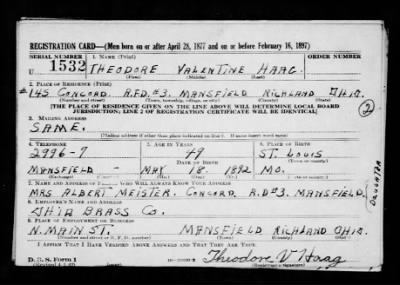 REGISTRATION CARD—(Men born on or after April 28, 1877 and on or before February 16, 1897)
SERIAL NUMBER 1. NAME (Print) ORDER NUMBER
U 1532 THEODORE VALENTINE HAAG
(First) (Middle) (Last)
2. PLACE OF RESIDENCE (Print)
145 CONCORD. R.F.D.#3. MANSFIELD RICHLAND OHIO.
(Number and street) (Town, township, village, or city) (County) (State)
[THE PLACE OF RESIDENCE GIVEN ON THE LINE ABOVE WILL DETERMINE LOCAL BOARD
JURISDICTION; LINE 2 OF REGISTRATION CERTIFICATE WILL BE IDENTICAL]
2
3. MAILING ADDRESS
SAME.
[Mailing address if other than place indicated on line 2. If same insert word same]
4. TELEPHONE 5. AGE IN YEARS 6. PLACE OF BIRTH
2996-7 49 ST. LOUIS
DATE OF BIRTH (Town or county)
MANSFIELD - MAY 18. 1892 MO.
(Exchange) (Number) (Mo.) (Day) (Yr.) (State or country)
7. NAME AND ADDRESS OF PERSON WHO WILL ALWAYS KNOW YOUR ADDRESS
MRS ALBERT MEISTER. CONCORD. R.D#3. MANSFIELD
DAUGHTER
8. EMPLOYER'S NAME AND ADDRESS
OHIO BRASS CO.
9. PLACE OF EMPLOYMENT OR BUSINESS
N. MAIN ST. MANSFIELD RICHLAND OHIO.
(Number and street or R. F. D. number) (Town) (County) (State)
I AFFIRM THAT I HAVE VERIFIED ABOVE ANSWERS AND THAT THEY ARE TRUE.
D. S. S. Form 1 Theodore V Haag